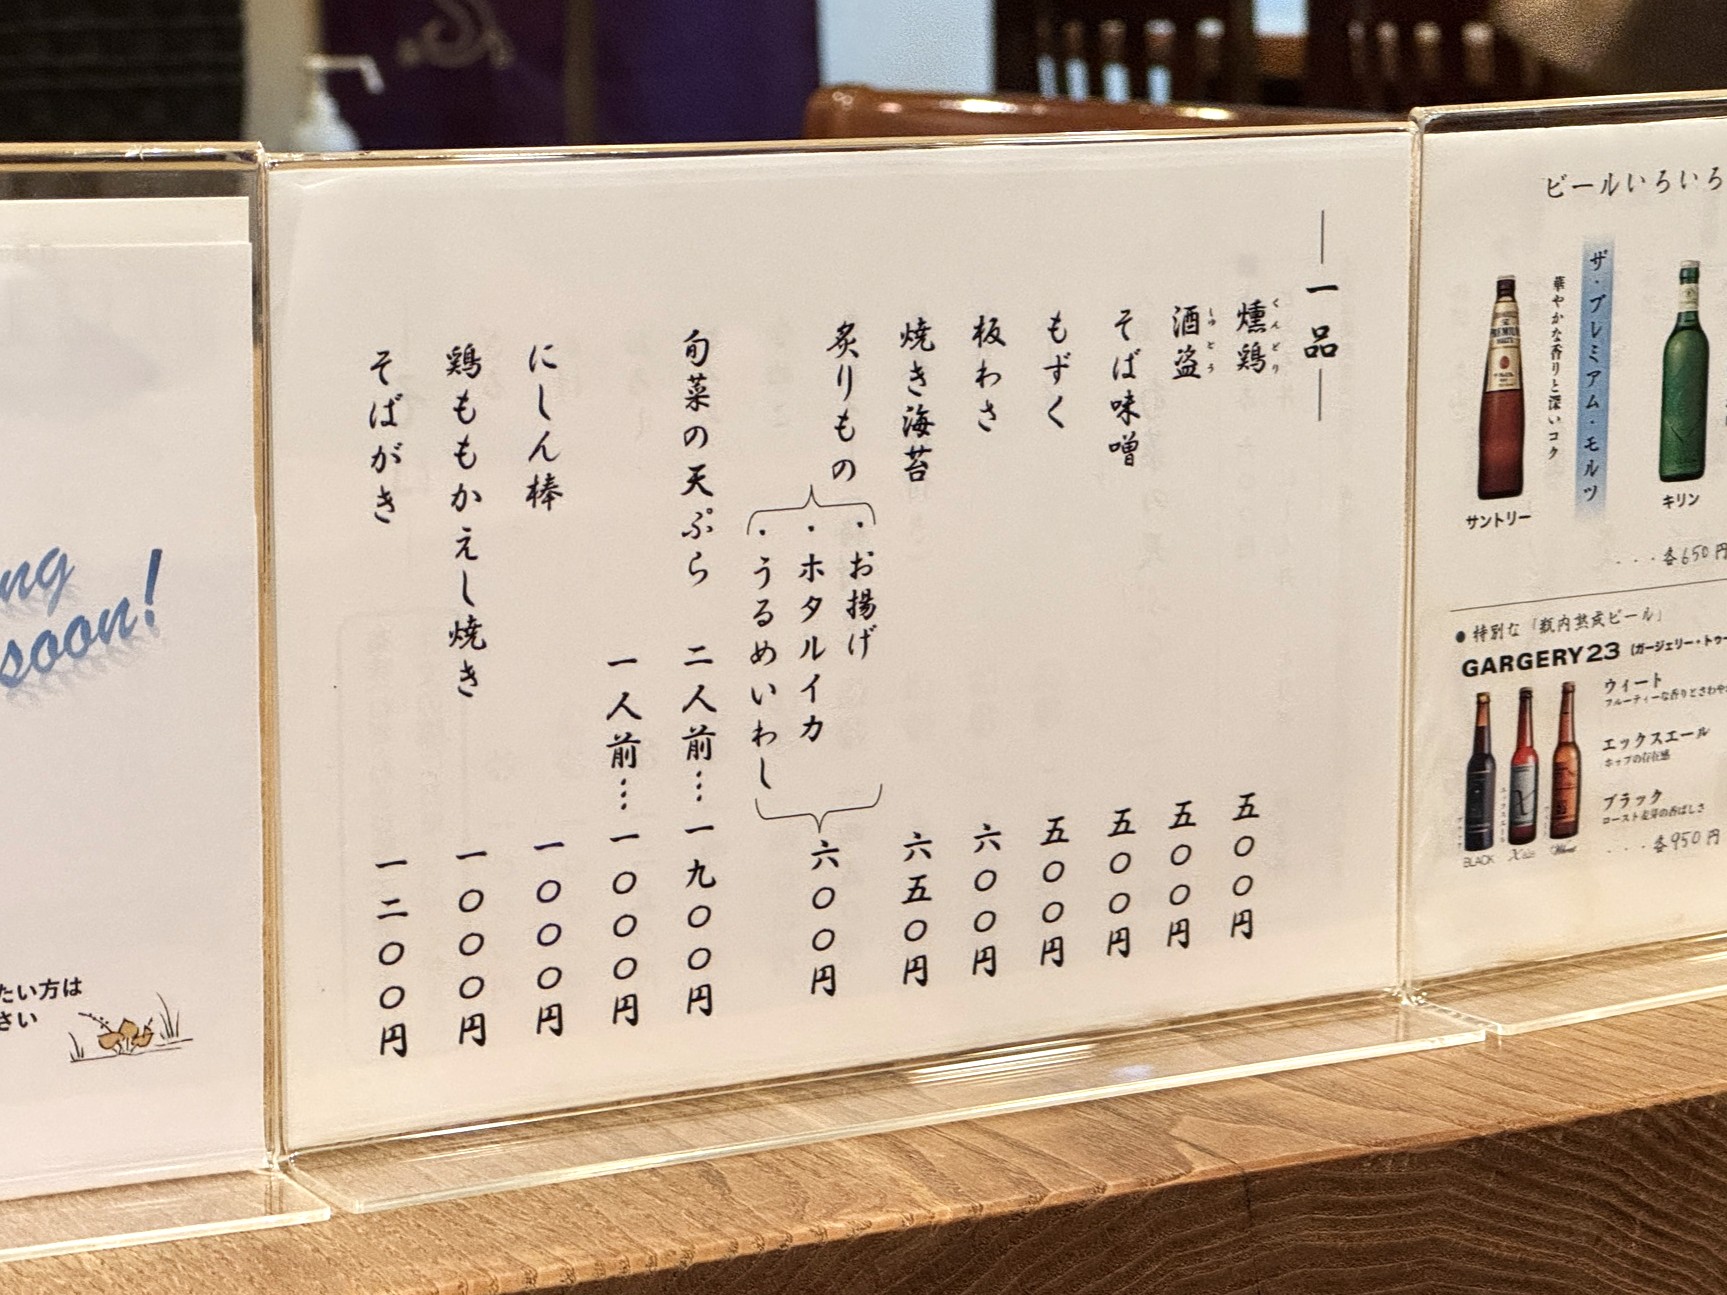 一品
燻鶏 五〇〇円
くんどり
酒盗 五〇〇円
しゅとう
そば味噌 五〇〇円
もずく 五〇〇円
板わさ 六〇〇円
焼き海苔 六五〇円
炙りもの
・お揚げ
・ホタルイカ
・うるめいわし
六〇〇円
旬菜の天ぷら 二人前…一九〇〇円
一人前…一〇〇〇円
にしん棒 一〇〇〇円
鶏ももかえし焼き 一〇〇〇円
そばがき 一二〇〇円
ビールいろいろ
ザ・プレミアム・モルツ
華やかな香りと深いコク
サントリー
キリン
・・・各650円
●特別な「瓶内熟成ビール」
GARGERY23 (ガージェリー・トゥー
ウィート
フルーティーな香りとさわや
エックスエール
ホップの存在感
ブラック
ロースト麦芽の香ばしさ
・・・各950円
BLACK
Wheat
ng
soon!
たい方は
さい